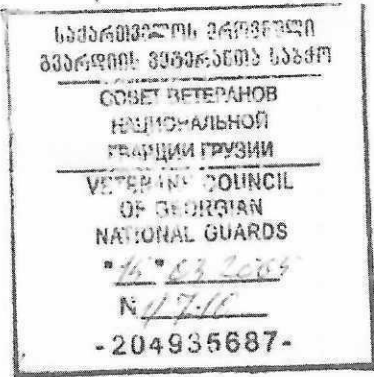 საქართველოს ეროვნული
გვარდიის ვეტერანთა საბჭო
СОВЕТ ВЕТЕРАНОВ
НАЦИОНАЛЬНОЙ
ГВАРДИИ ГРУЗИИ
VETERANS COUNCIL
OF GEORGIAN
NATIONAL GUARDS
"15" 03
N
-204935687-